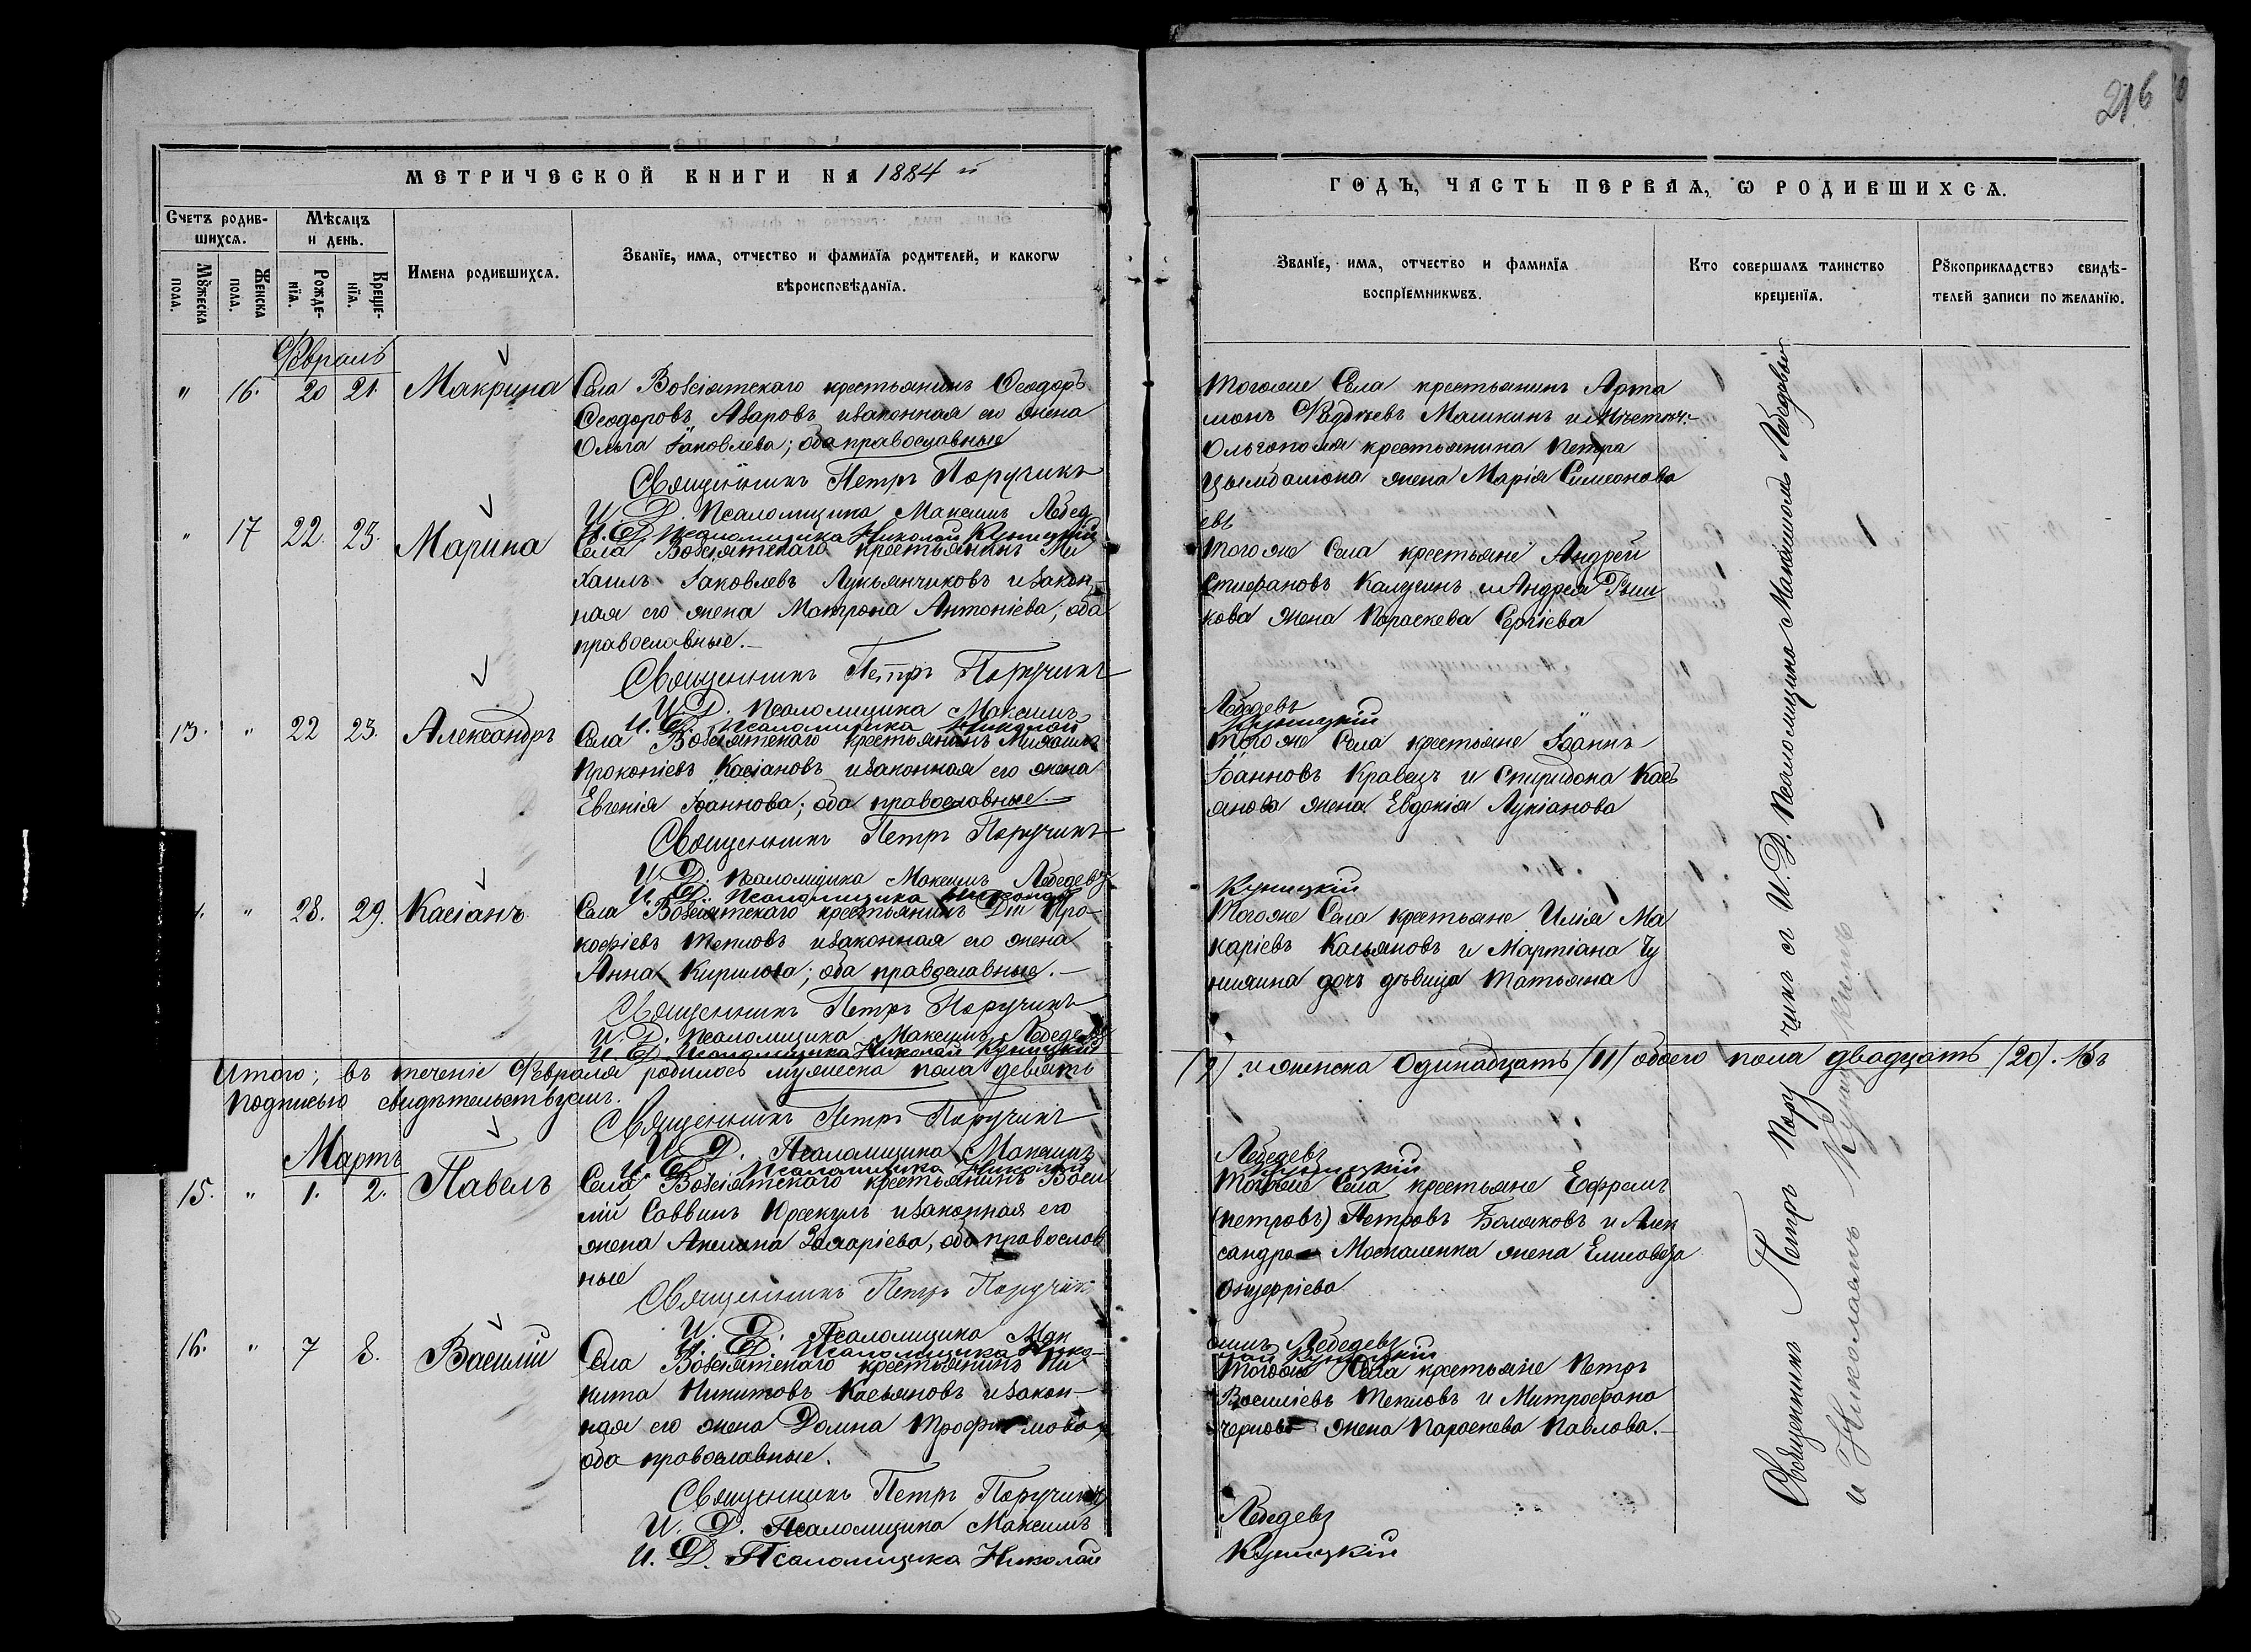 216
МЕТРИЧЕСКОЙ КНИГИ НА 1884 й
ГОДЪ, ЧАСТЬ ПЕРВАЯ, Ѡ РОДИВШИХСЯ.
Счетъ родив-
шихся.
Мѣсяцъ
и день.
Мꙋжеска
пола.
Женска
пола.
Рожде-
нїя.
Креще-
нїя.
Имена родившихся.
Званїе, имя, отчество и фамилїя родителей, и какогѡ
вѣроисповѣданїя.
Званїе, имя, отчество и фамилїя
воспрїемникѡвъ.
Кто совершалъ таинство
крещенїя.
Рꙋкоприкладство свидѣ-
телей записи по желанїю.
Февраль
" 16. 20 21. Макрина
Села Возсіятскаго крестьянинъ Ѳеодоръ
Ѳеодоровъ Азаровъ изаконная его жена
Ольга Іаковлева; оба православные
Священникъ Петръ Поручикъ
И. Д. Псаломщика Максимъ Лебед
евъ
И. Д. Псаломщика Николай Куницкій
Тогоже Села крестьянинъ Арта
монъ Машкинъ и
Ольгополя крестьянина Петра
жена Марія Симеонова
" 17 22. 23. Марина
Села Возсіятскаго крестьянинъ Ми
хаилъ Іаковлевъ Лукьянчиковъ изакон-
ная его жена Матрона Антоніева; оба
православные.-
Священникъ Петръ Поручикъ
И. Д. Псаломщика Максимъ
Лебедевъ
И. Д. Псаломщика Николай
Куницкій
Того же Села крестьяне Андрей
Стефановъ Калугинъ и Андрея
кова жена Параскева Сергіева
13. " 22 23. Александръ
Села Возсіятскаго крестьянинъ Михаилъ
Прокопіевъ Касіановъ изаконная его жена
Евгенія Іоаннова; оба православные.-
Священникъ Петръ Поручикъ
И. Д. Псаломщика Максимъ Лебедевъ
И. Д. Псаломщика Николай
Куницкій
Того же Села крестьяне Іоаннъ
Іоанновъ Кравецъ и Спиридона Кась
янова жена Евдокія Лукіанова
" 28. 29. Касіанъ
Села Возсіятскаго крестьянинъ Про-
кофіевъ Тепловъ изаконная его жена
Анна Кирилова; оба православные.-
Священникъ Петръ Поручикъ
И. Д. Псаломщика Максимъ Лебедевъ
И. Д. Псаломщика Николай Куницкій
Того же Села крестьяне Илія Ма
каріевъ Касьяновъ и Мартіана
дочь дѣвица Татьяна
Итого; въ теченіе Февраля родилось мужеска пола девять
/9/ и женска Одинадцать /11/ обоего пола двадцать /20/. Въ
Подписью свидѣтельствуемъ.
Священникъ Петръ Поручикъ
И. Д. Псаломщика Максимъ
Лебедевъ
И. Д. Псаломщика Николай
Куницкій
Мартъ
15. " 1. 2. Павелъ
Села Возсіятскаго крестьянинъ Васи
лій Саввинъ изаконная его
жена Акилина Захаріева, оба православ
ные
Священникъ Петръ Поручикъ
И. Д. Псаломщика Мак
симъ Лебедевъ
И. Д. Псаломщика Нико-
лай Куницкій
Тогоже Села крестьяне Ефремъ
(Петровъ) Петровъ и Алек
сандра Москаленка жена Елисавета
Онуфріева
16. " 7 8. Василій
Села Возсіятскаго крестьянинъ Ни
кита Никитовъ Касьяновъ изакон-
ная его жена Домна Трофимова,
оба православные.
Священникъ Петръ Поручикъ
И. Д. Псаломщика Максимъ
Лебедевъ
И. Д. Псаломщика Николай
Куницкій
Тогоже Села крестьяне Петръ
Василіевъ Тепловъ и Митрофана
жена Параскева Павлова.-
Священникъ Петръ Поручикъ съ И. Д. Псаломщика Максимомъ Лебедевымъ
и Николаемъ Куницкимъ